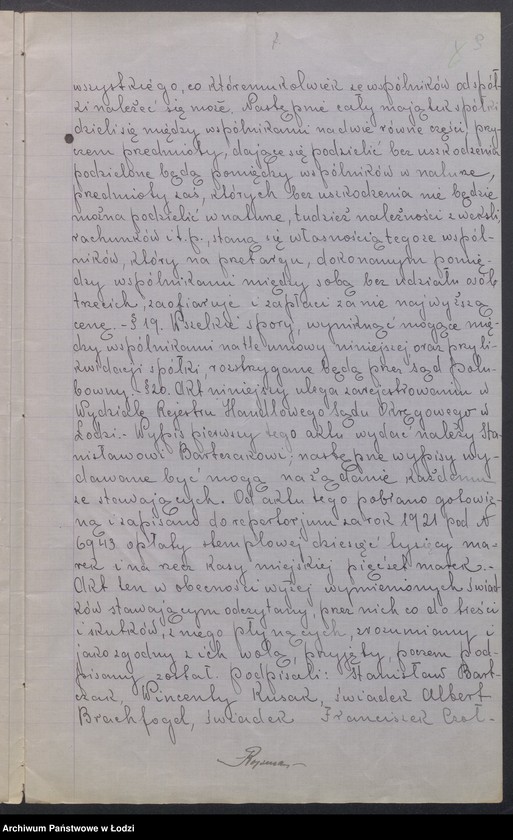 wszystkiego, co któremukolwiek ze wspólników od spół-
ki należeć się może. Następnie cały majątek spółki
dzieli się między wspólnikami na dwie równe części, przy-
czem przedmioty, dające się podzielić bez uszkodzenia
podzielone będą pomiędzy wspólników w naturze,
przedmioty zaś, których bez uszkodzenia nie będzie
można podzielić w naturze, tudzież należności z weksli,
rachunków i t.p., staną się własnością tegoż ze wspól-
ników, który na przetargu, dokonanym pomię-
dzy wspólnikami między sobą bez udziału osób
trzecich, zaofiaruje i zapłaci za nie najwyższą
cenę. - § 19. Wszelkie spory, wyniknąć mogące mię-
dzy wspólnikami na tle umowy niniejszej oraz przy li-
kwidacji spółki, rozstrzygane będą przez sąd polu-
bowny. - § 20. Akt niniejszy ulega zarejestrowaniu w
Wydziale Rejestru Handlowego Sądu Okręgowego w
Łodzi. - Wypis pierwszy tego aktu wydać należy Sta-
nisławowi Bartczakowi; następne wypisy wy-
dawane być mogą na żądanie każdemu
ze stawających. Od aktu tego pobrano gotowiz-
ną i zapisano do repertorjum za rok 1921 pod №
6943 opłaty stemplowej dziesięć tysięcy ma-
rek i na rzecz kasy miejskiej pięćset marek. -
Akt ten w obecności wyżej wymienionych świad-
ków stawającym odczytany, przez nich co do treści
i skutków, z niego płynących, zrozumiany i
jako zgodny z ich wolą, przyjęty, poczem pod-
pisany został. Podpisali: Stanisław Bart-
czak, Wincenty Kusak, świadek Albert
Brachfogel, świadek Franciszek Czoł-
Archiwum Państwowe w Łodzi